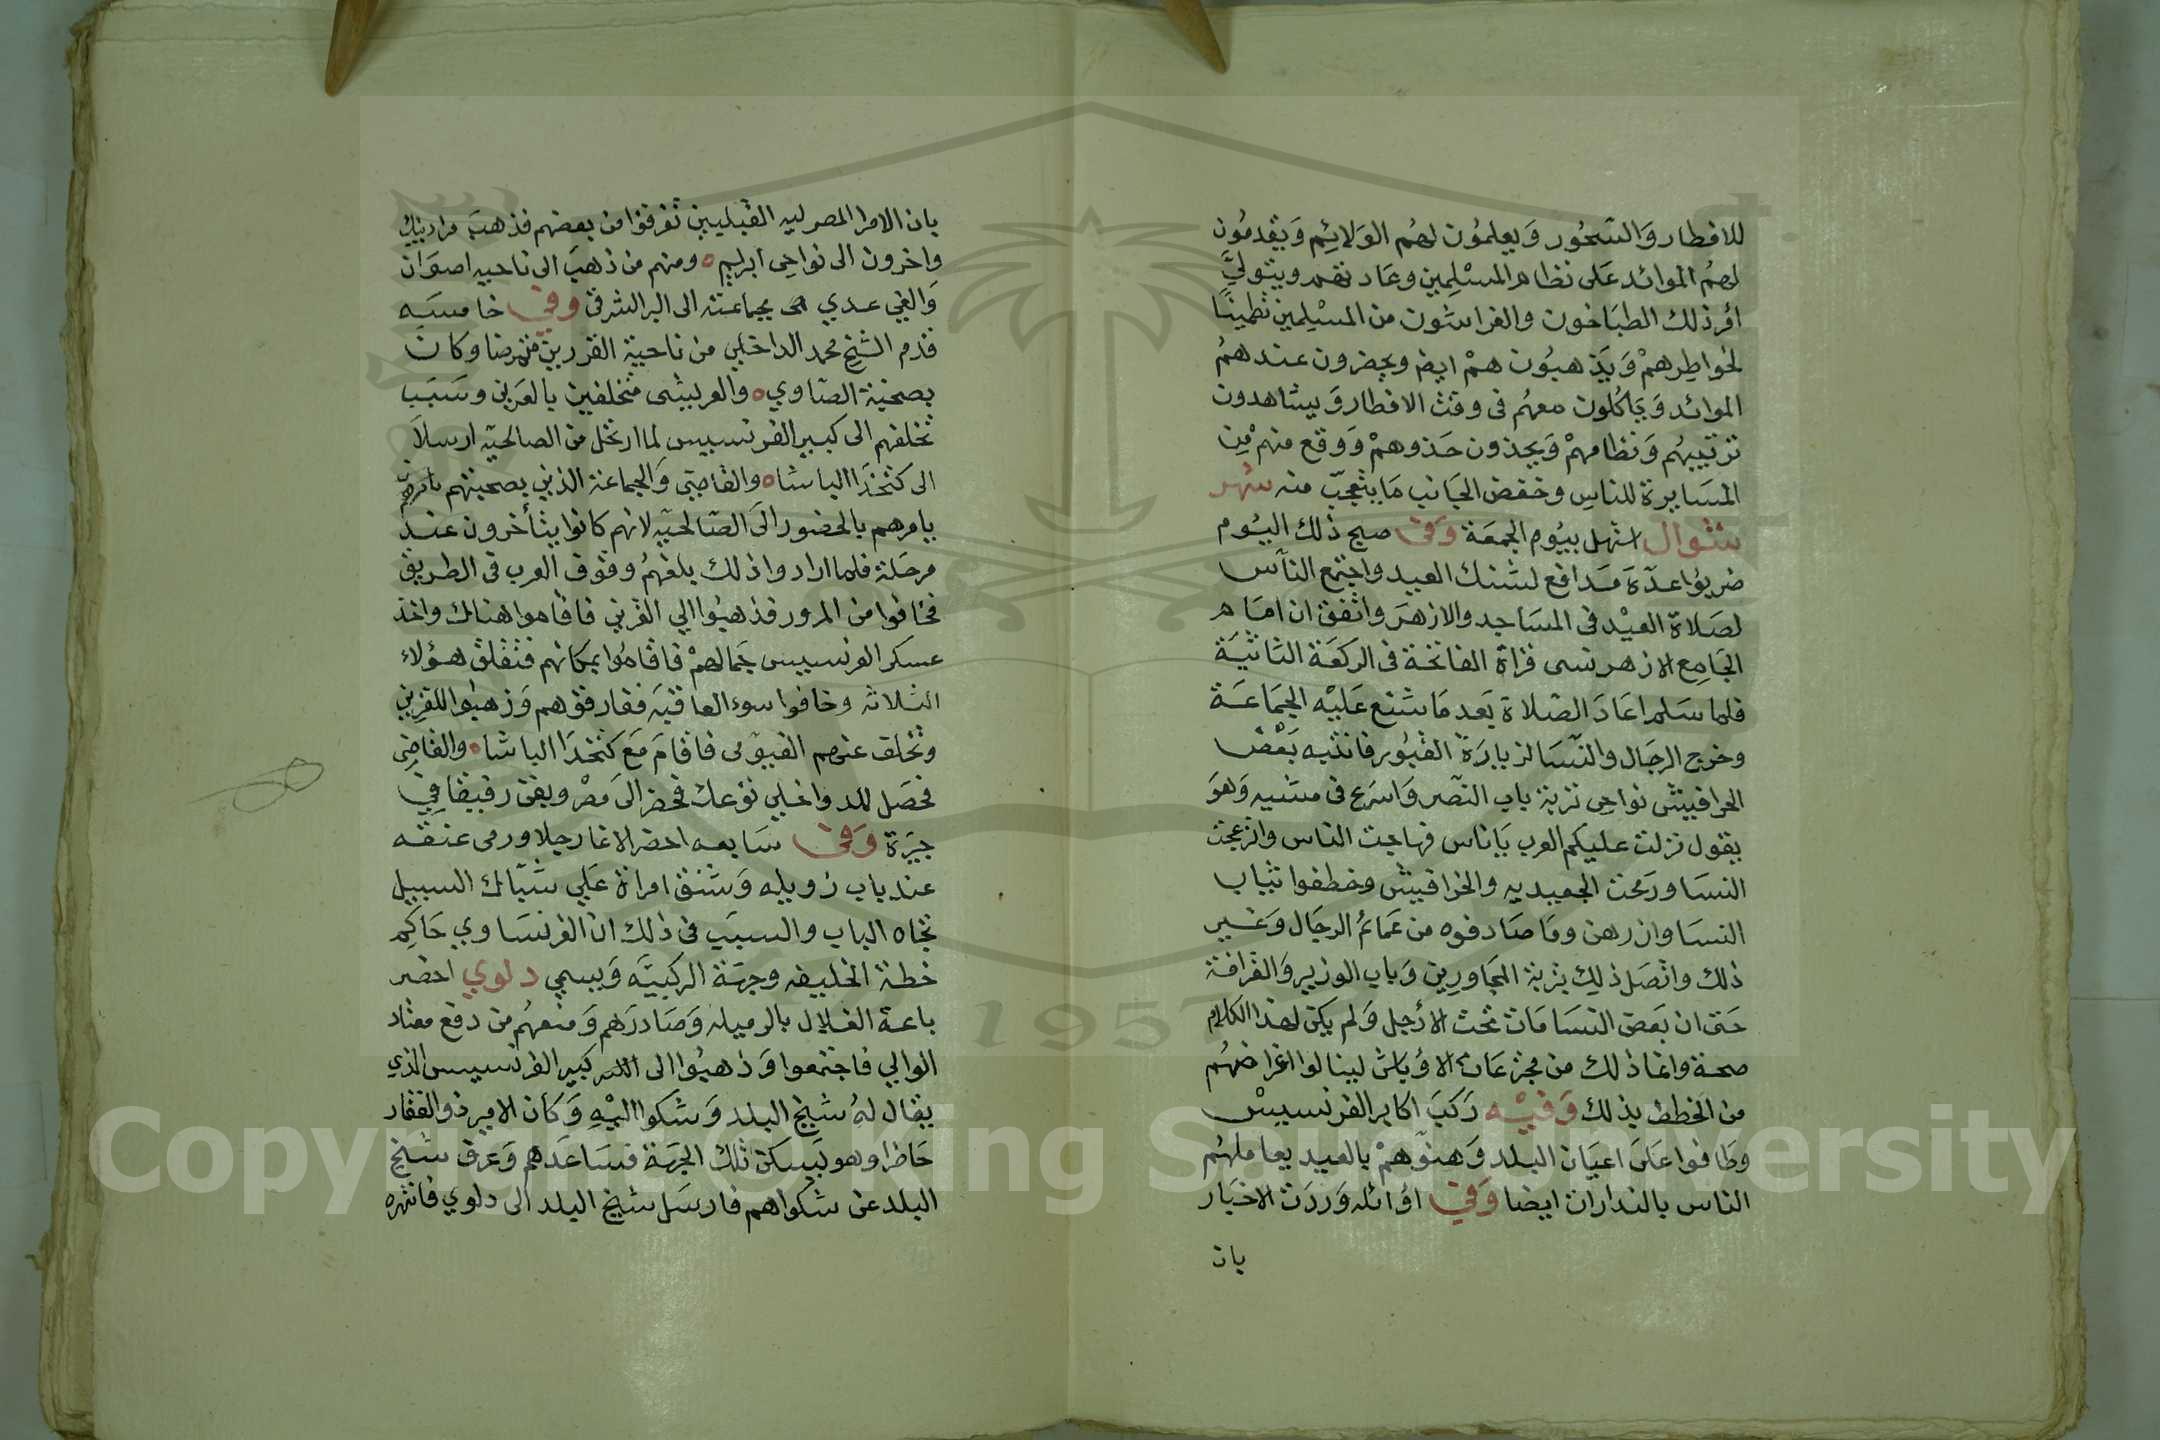 للافطار والسحور ويعلمون لهم الولائم ويقدمون
لهم الموائد على نظام المسلمين وعادتهم ويتولى
أمر ذلك الطباخون والفراشون من المسلمين تطمينا
لخواطرهم ويذهبون هم ايض ويحضرون عندهم
الموائد وياكلون معهم في وقت الافطار ويشاهدون
ترتيبهم ونظامهم ويحذون حذوهم ووقع منهم من
المسايرة للناس وخفض الجانب ما يتعجب منه شهر
شوال استهل بيوم الجمعة وفي صبح ذلك اليوم
ضربوا عدة مدافع لشنك العيد واجتمع الناس
لصلاة العيد في المساجد والازهر واتفق ان امام
الجامع الازهر نسى قراة الفاتحة في الركعة الثانية
فلما سلم اعاد الصلاة بعد ما شنع عليه الجماعة
وخرج الرجال والنسا لزيارة القبور فانتبه بعض
الحرافيش نواحي تربة باب النصر واسرع في مشيه وهو
يقول نزلت عليكم العرب ياناس فهاجت الناس وانزعجت
النسا ورمحت الجعيديه والحرافيش وخطفوا ثياب
النسا وازرهن وما صادفوه من عمائم الرجال وغير
ذلك واتصل ذلك بتربة المجاورين وباب الوزير والقرافة
حتى ان بعض النسا مات تحت الأرجل ولم يكن لهذا الكلام
صحة وانما ذلك من مخترعات الاوباش لينالوا اغراضهم
من الخطف بذلك وفيه ركب اكابر الفرنسيس
وطافوا على اعيان البلد وهنوهم بالعيد يعاملهم
الناس بالندارات ايضا وفي اوائله وردت الاخبار
بان
بان الامرا المصرليه القبليين تفرقوا من بعضهم فذهب مراد بيك
واخرون الى نواحى ابريم ومنهم من ذهب الى ناحيه اصوان
والفي عدي بجماعته الى البر الشرقي وفي خامسه
قدم الشيخ محمد الداخلي من ناحية القرين متمرضا وكان
بصحبة الصاوي والعريشى متخلفين بالقرين وسبب
تخلفهم الى كبير الفرنسيس لما ارتحل من الصالحيه ارسل
الى كتخدا الباشاه والقاضي والجماعة الذين بصحبتهم
يامرهم بالحضور الى الصالحيه لانهم كانوا يتأخرون عنه
مرحلة فلما ارادوا ذلك بلغهم وقوف العرب في الطريق
فخافوا من المرور فذهبوا الي القرين فاقاموا هنالك واخذ
عسكر الفرنسيس جمالهم فاقاموا بمكانهم فتقلق هؤلاء
الثلاثه وخافوا سوء العاقبه ففارقوهم وذهبوا للقرين
وتخلف عنهم الفيومى فاقام مع كتخدا الباشاه والقاضي
فحصل للدواخلي توعك فحضر الى مصر وبقى رفيقا في
حيرة وفى سابعه احضر الاغا رجلا ورمى عنقه
عند باب زويله وشنق امراة علي شباك السبيل
تجاه الباب والسبب في ذلك ان الفرنساوي حاكم
خطة الخليفه وجهة الركبيه ويسمى دلوي احضر
باعة الغلال بالرميله وصادرهم ومنعهم من دفع معتاد
الوالي فاجتمعوا وذهبوا الى كبير الفرنسيس الذي
يقال له شيخ البلد وشكوا اليه وكان الامير ذو الفقار
حاضرا وهو يسكن تلك الجهة فساعدهم وعرف شيخ
البلد عن شكواهم فارسل شيخ البلد الى دلوي فانتهره
Copyright © King Saud University
1957